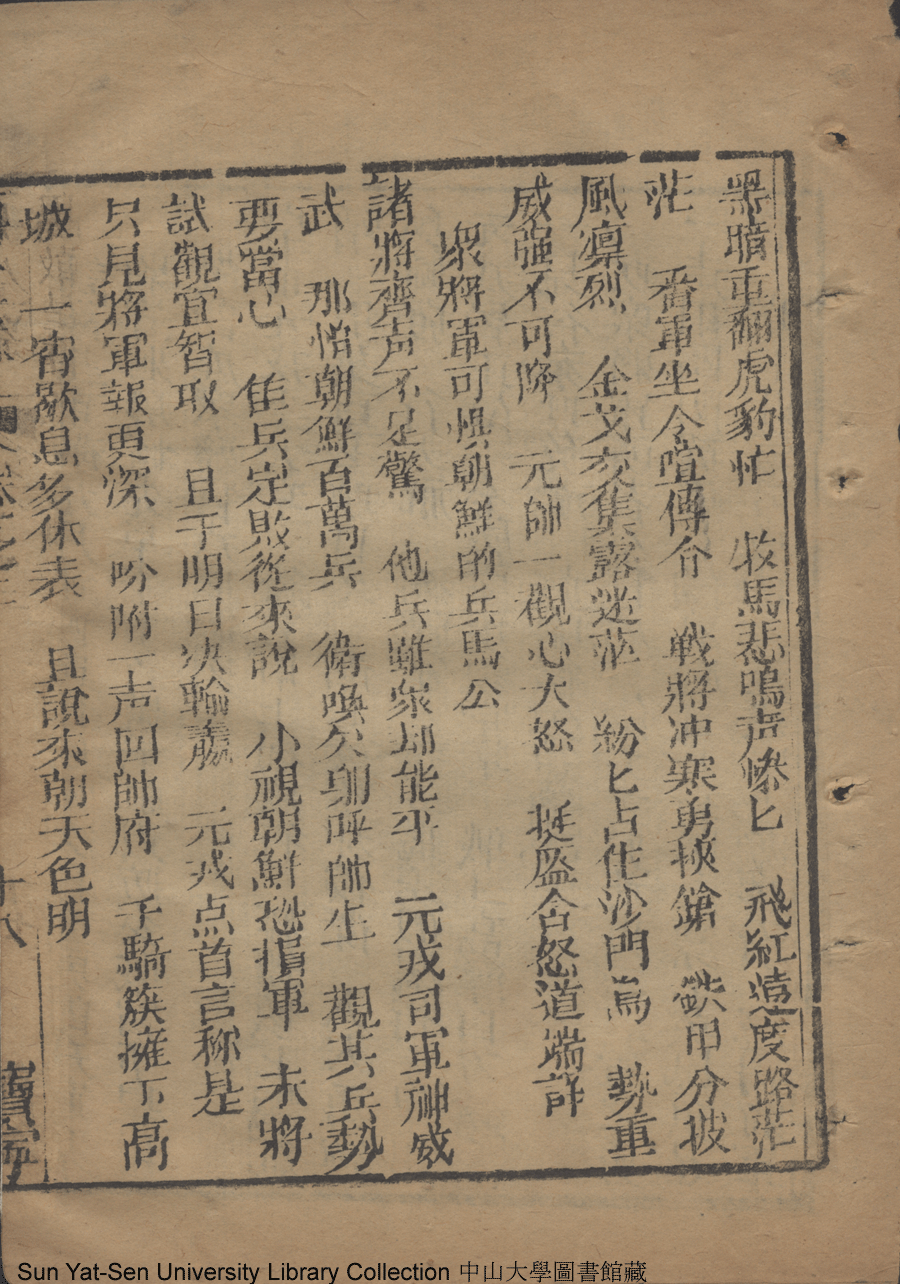 黑暗重翻虎豹忙　牧馬悲鳴声慘匕　飛紅遠度路茫
茫　番軍坐令喧傳介　戦將冲寒勇挾鎗　鉄甲分披
風凛烈　金戈交集露迷茫　紛匕占住沙門爲　勢重
威强不可降　元帥一觀心大怒　挺盔含怒道端詳
衆將軍可惧朝鮮的兵馬公
諸將齊声不足驚　他兵雖衆却能平　元戎司軍神威
武　那怕朝鮮百萬兵　衛喚欠郍呼帥生　觀其兵勢
要當心　隹兵定敗從來說　小視朝鮮恐損軍　未將
試觀宜智取　且于明日决輸嬴　元戎点首言称是
只見將軍報更深　吩咐一声回帥府　千騎簇擁下高
城　一宿歇息多休表　且說來朝天色明
十八
Sun Yat-Sen University Library Collection 中山大學圖書館藏